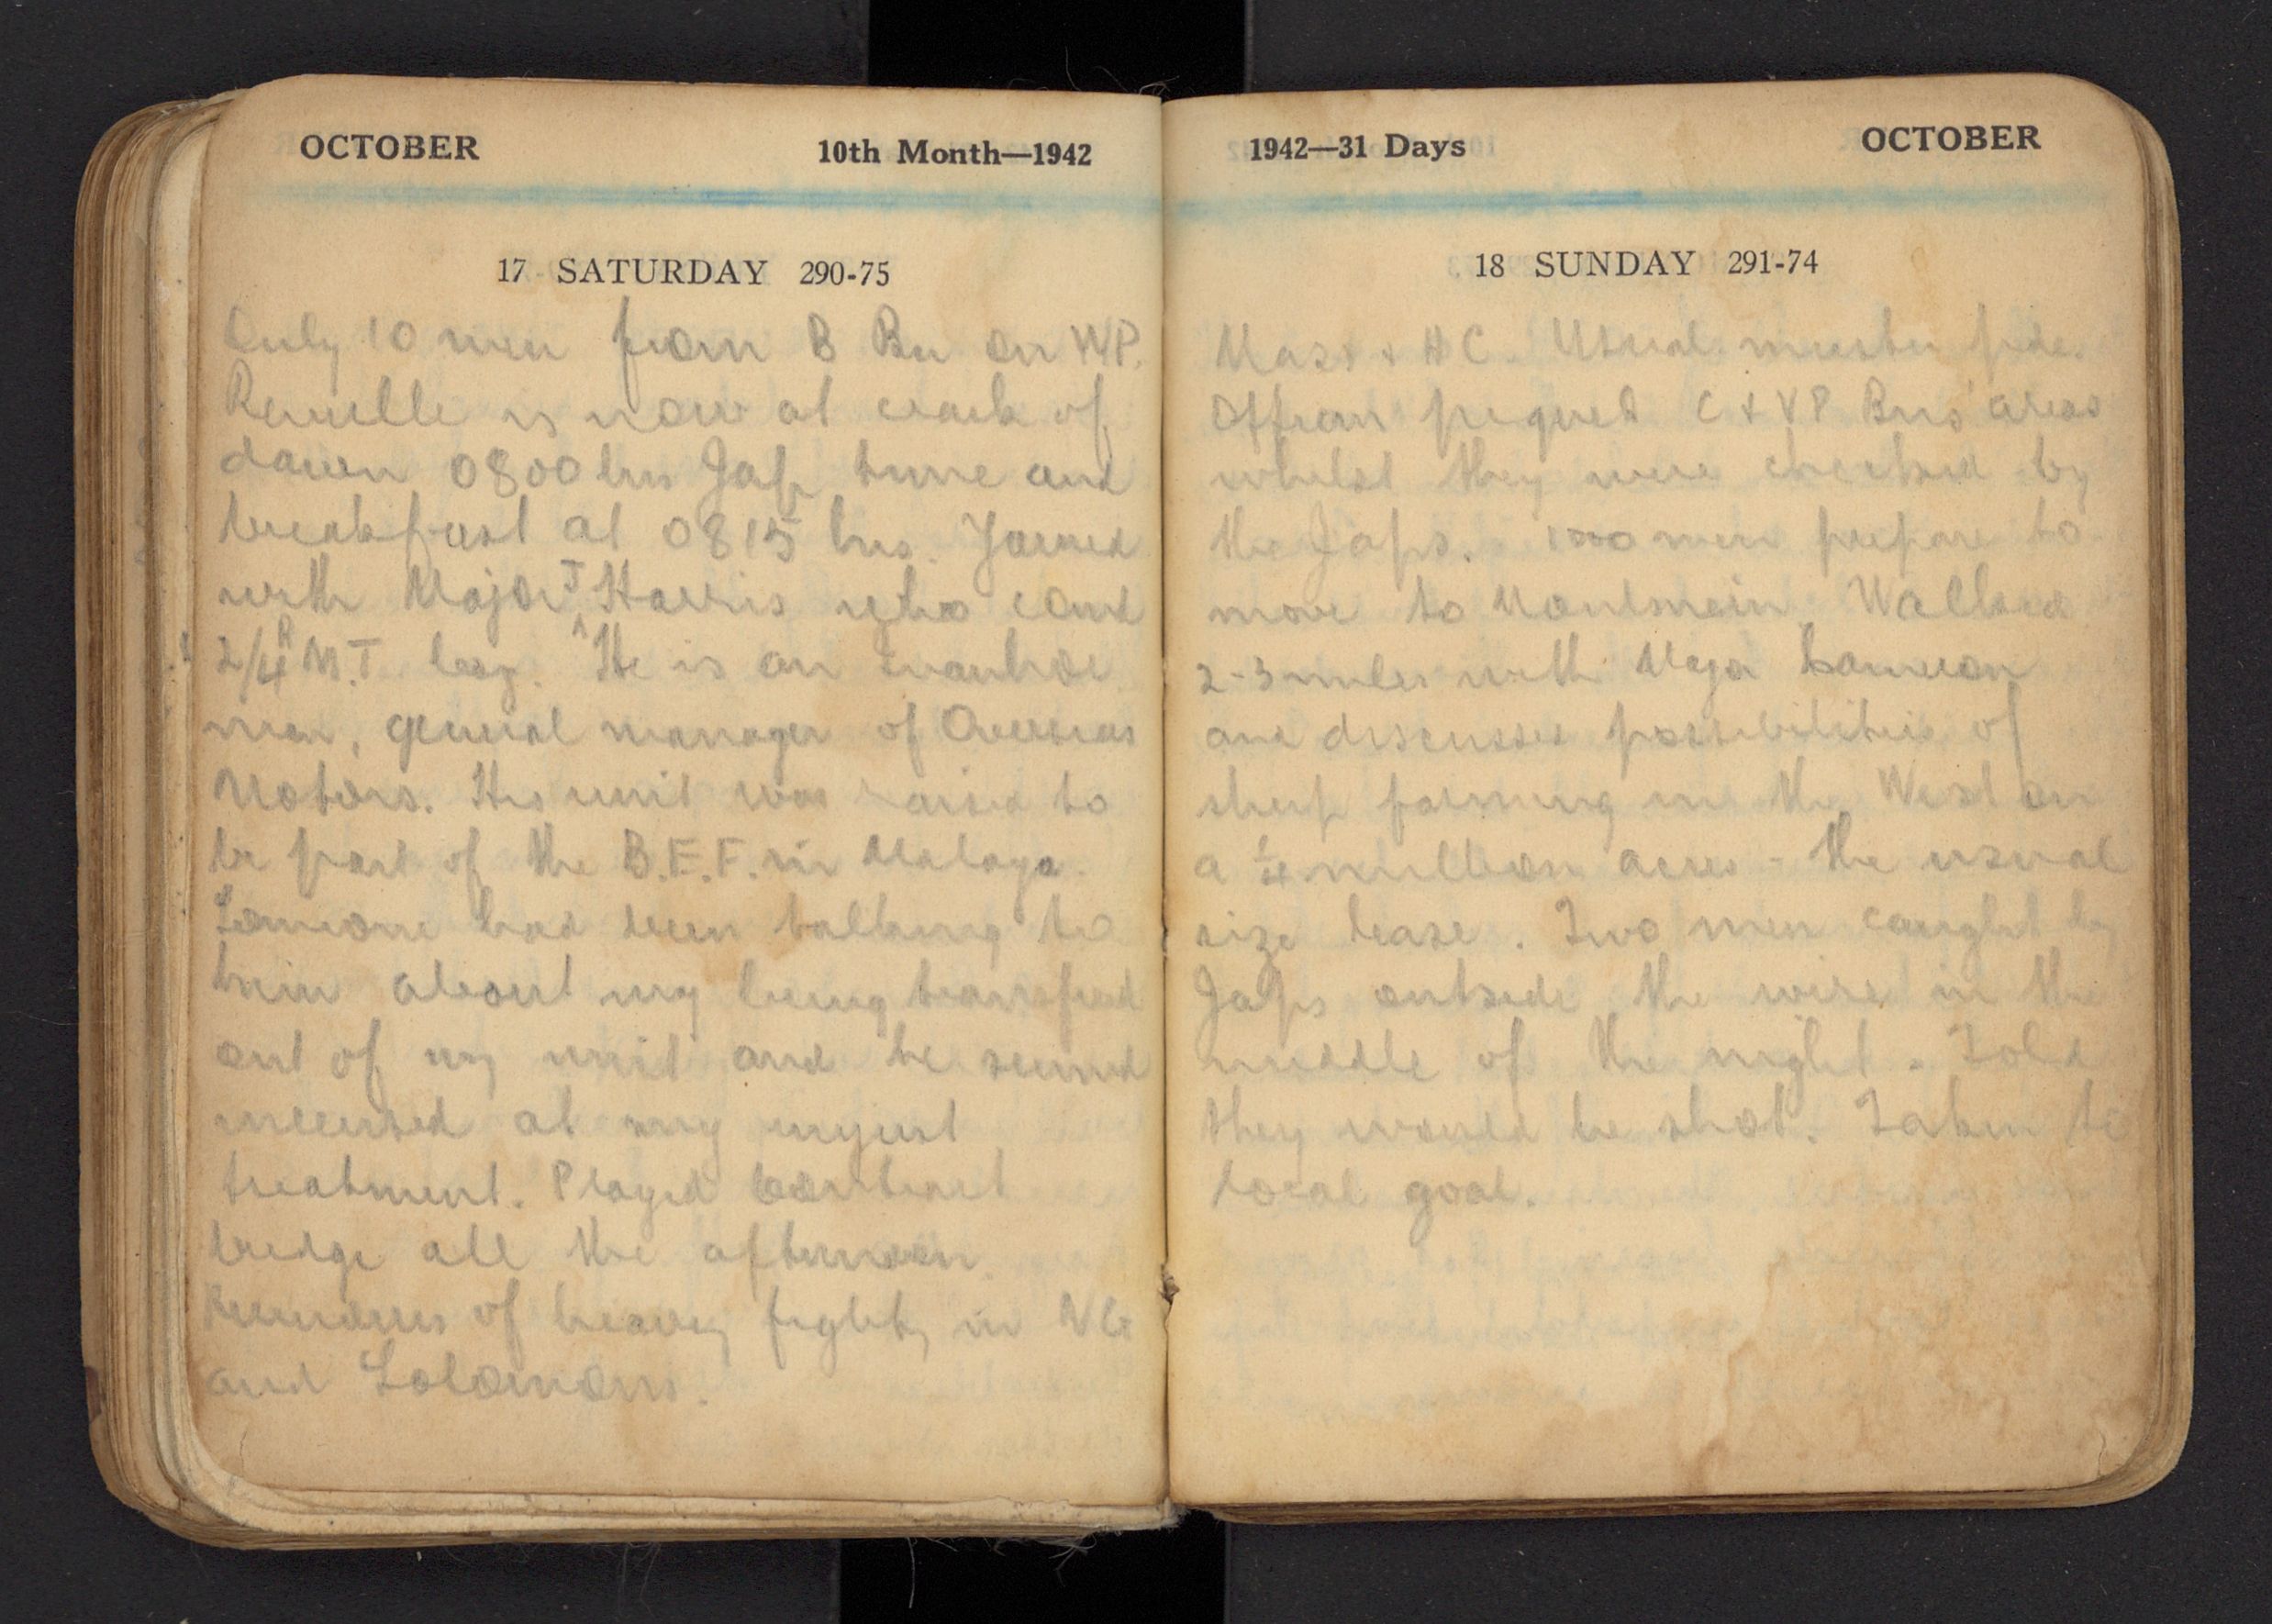 OCTOBER 10th Month—1942
17 SATURDAY 290-75
Only 10 men from B Bn on WP.
Reveille is now at crack of
dawn 0800 hrs Jap time and
breakfast at 0815 hrs. Yarned
with Major J Harris who comd
2/4 R M.T. Coy. He is an Ivanhoe
man, general manager of Overseas
Motors. His unit was raised to
be part of the B.E.F. in Malaya.
Someone had been talking to
him about my being transfered
out of my unit and he seemed
incensed at my unjust
treatment. Played contract
bridge all the afternoon.
Rumours of heavy fightg in NG
and Solomons.
1942—31 Days OCTOBER
18 SUNDAY 291-74
Mass & HC. Usual muster pde.
Officers piquet C & VP Bns' areas
whilst they were checked by
the Japs. 1000 men prepare to
move to Moulmein. Walked
2-3 miles with Major
and discusses possibilities of
sheep farming in the West on
a ¼ million acres - the usual
size lease. Two men caught by
Japs outside the wire in the
middle of the night. Told
they would be shot. Taken to
local goal.